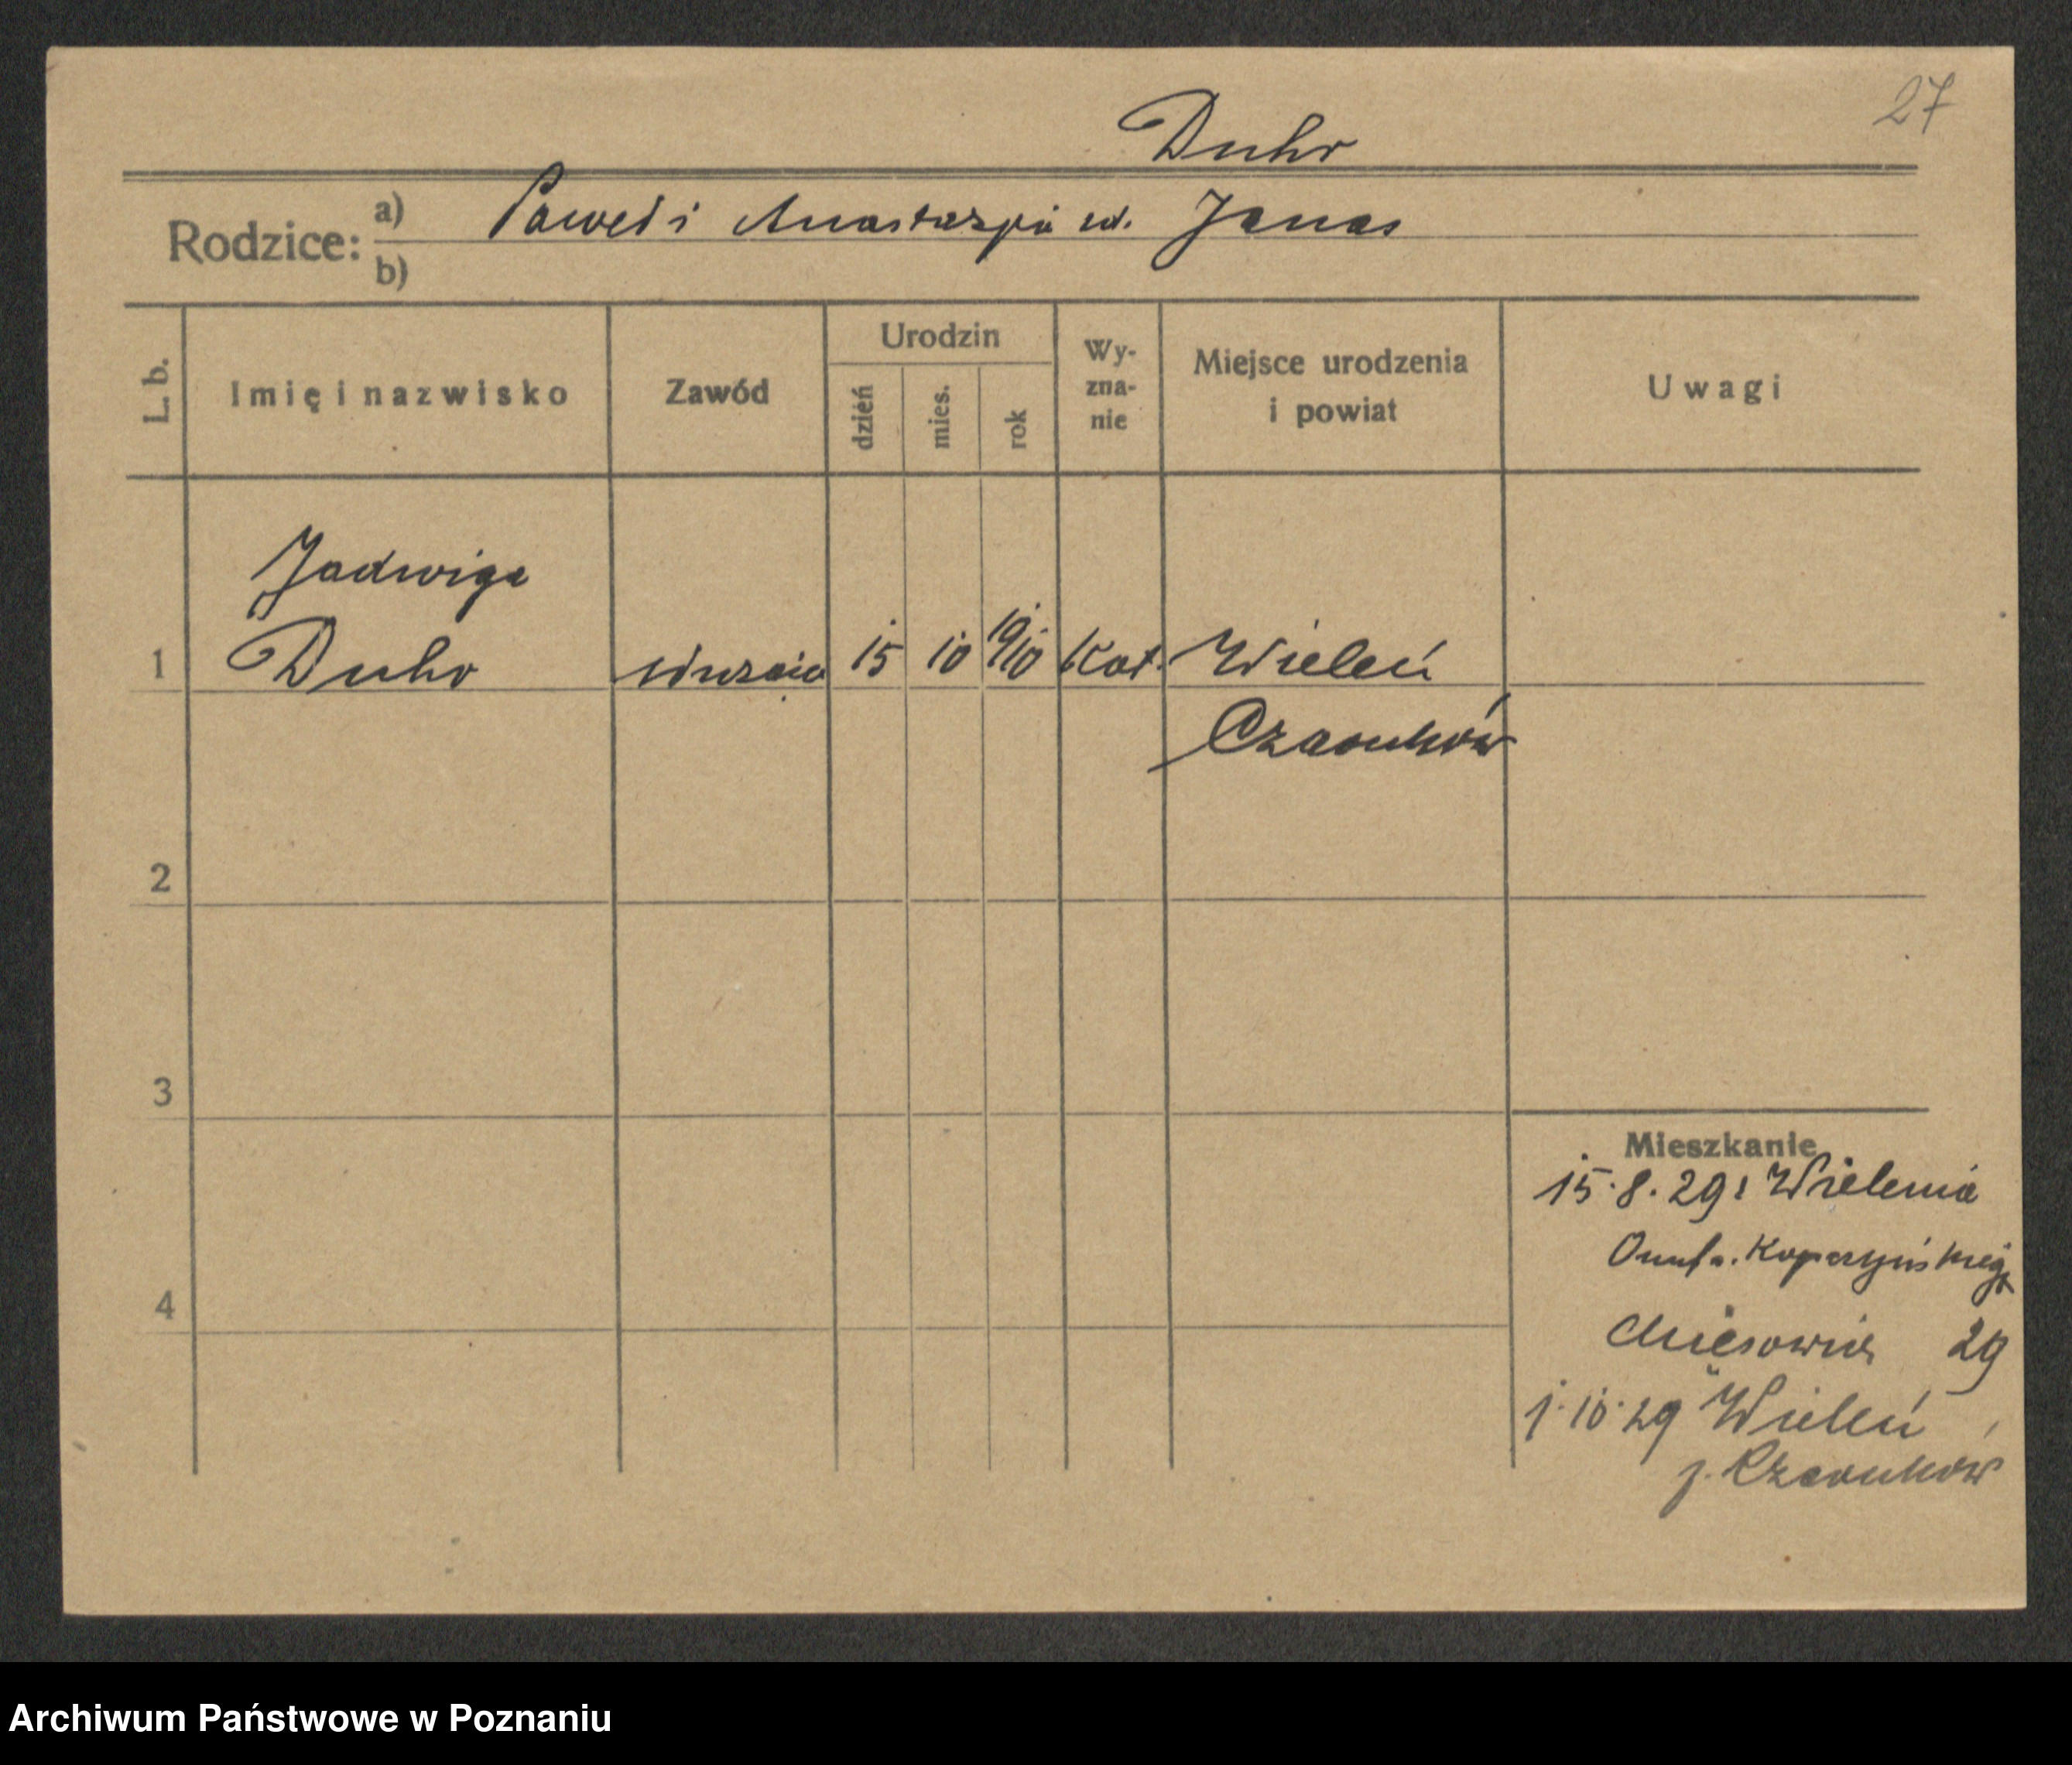 27
Duhr
Rodzice: a) Paweł i Anastazja zd. Janas
b)
L. b.
Imię i nazwisko
Zawód
Urodzin
dzień
mies.
rok
Wy-
zna-
nie
Miejsce urodzenia
i powiat
Uwagi
Jadwiga
1 Duhr 15 10 1910 Kat. Wieleń
Czarnków
2
3
4
Mieszkanie
15.8.29 z Wielenia
29
1.10.29 Wieleń
p. Czarnków
Archiwum Państwowe w Poznaniu